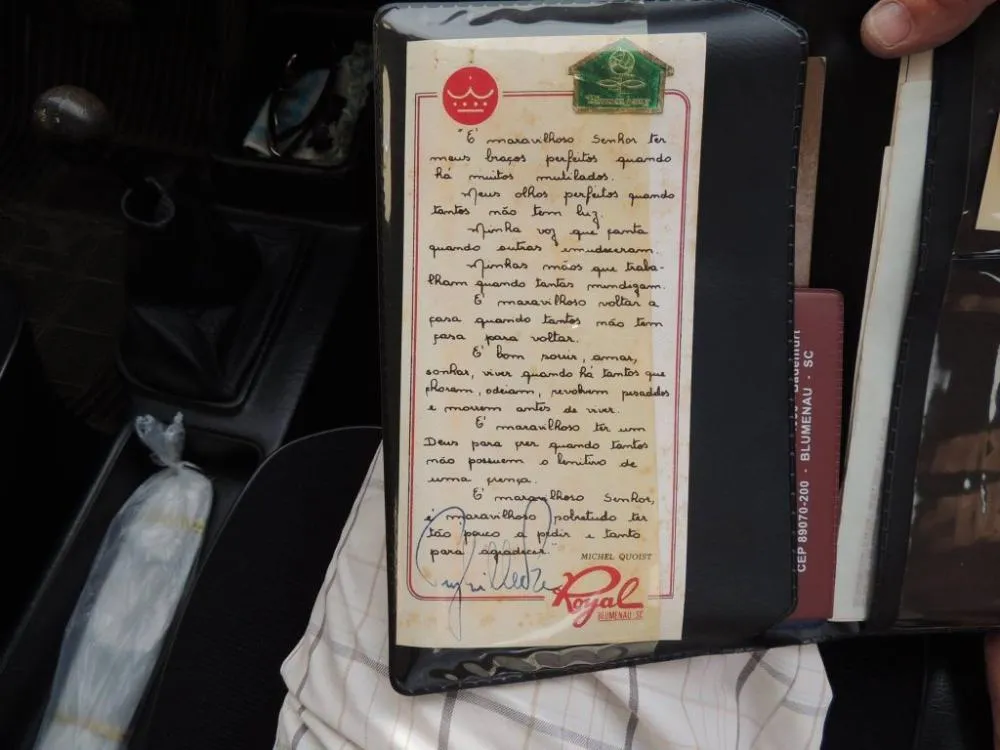 "É maravilhoso Senhor ter
meus braços perfeitos quando
há muitos mutilados.
Meus olhos perfeitos quando
tantos não tem luz.
Minha voz que canta
quando outras emudeceram.
Minhas mãos que traba-
lham quando tantas mendigam.
É maravilhoso voltar a
casa quando tantos não tem
casa para voltar.
É bom sorrir, amar,
sonhar, viver quando há tantos que
choram, odeiam, revolvem pesadelos
e morrem antes de viver.
É maravilhoso ter um
Deus para crer quando tantos
não possuem o lenitivo de
uma crença.
É maravilhoso Senhor,
é maravilhoso sobretudo ter
tão pouco a pedir e tanto
para agradecer."
MICHEL QUOIST
Royal
BLUMENAU-SC
CEP 89070-200 · BLUMENAU · SC